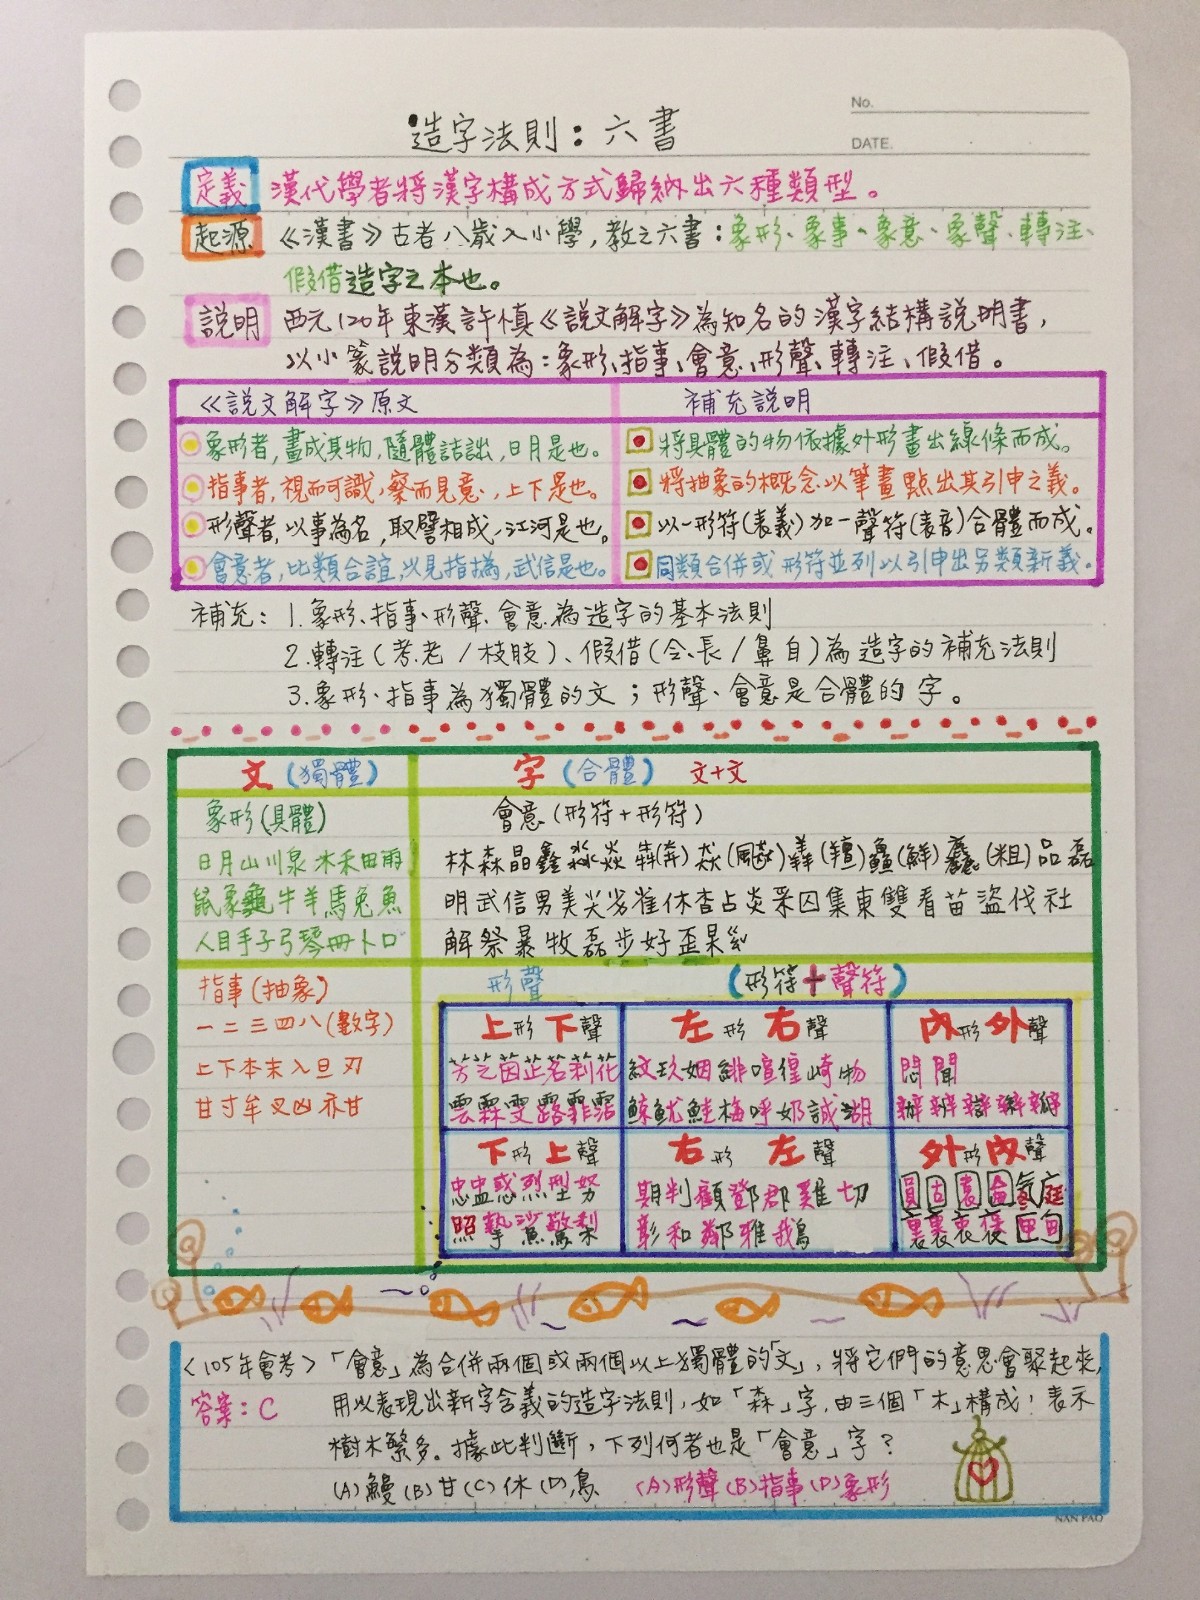 No.
造字法則：六書
DATE.
定義 漢代學者將漢字構成方式歸納出六種類型。
起源 《漢書》古者八歲入小學，教之六書：象形、象事、象意、象聲、轉注、
假借造字之本也。
說明 西元120年東漢許慎《說文解字》為知名的漢字結構說明書，
以小篆說明分類為：象形、指事、會意、形聲、轉注、假借。
《說文解字》原文 補充說明
象形者，畫成其物，隨體詰詘，日月是也。 將具體的物依據外形畫出線條而成。
指事者，視而可識，察而見意，上下是也。 將抽象的概念以筆畫點出其引申之義。
形聲者，以事為名，取譬相成，江河是也。 以一形符(表義)加一聲符(表音)合體而成。
會意者，比類合誼，以見指撝，武信是也。 同類合併或形符並列以引申出另類新義。
補充：1.象形、指事、形聲、會意為造字的基本法則
2.轉注(考.老/枝肢)、假借(令、長/鼻自)為造字的補充法則
3.象形、指事為獨體的文；形聲、會意是合體的字。
文(獨體) 字(合體) 文+文
象形(具體) 會意(形符+形符)
日月山川泉木禾田雨 林森晶鑫淼焱犇(奔)猋(飆)羴(羶)鱻(鮮)麤(粗)品磊
鼠象龜牛羊馬兔魚 明武信男美尖劣雀休杳占炎采囚集東雙看苗盜伐社
人目手子弓琴冊卜口 解祭暴牧磊步好歪杲
指事(抽象) 形聲 (形符+聲符)
一二三四八(數字) 上形下聲 左形右聲 內形外聲
上下本末入旦刃 芳芝茵芷茗莉花 紋玖姻緋喧徨崎物 悶聞
甘寸牟叉凶亦甘 雲霖雯露霏霑 鯨魷鮭梅呼奶誠湖 辦辨辯辮瓣
下形上聲 右形左聲 外形內聲
忠盅惑烈型努 期判顧鄧郡雞切 圓固園圇氣庭
照擊鯊驚梨 彰和鄰雅鵝 裏裹衷褒匣匍
〈105年會考〉「會意」為合併兩個或兩個以上獨體的「文」，將它們的意思會聚起來，
答案：C 用以表現出新字含義的造字法則，如「森」字，由三個「木」構成，表示
樹木繁多。據此判斷，下列何者也是「會意」字？
(A)鰻(B)甘(C)休(D)鳥 (A)形聲(B)指事(D)象形
NAN PAO